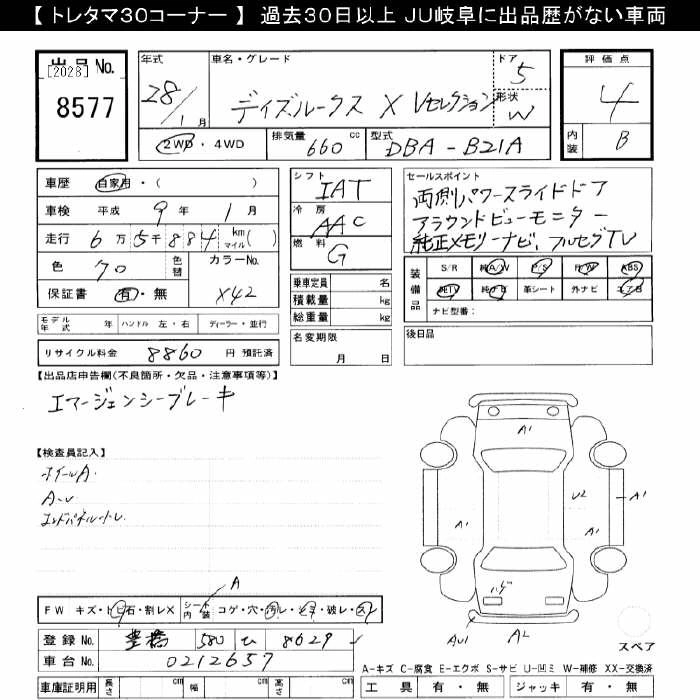 【 トレタマ30コーナー 】 過去30日以上 JU岐阜に出品歴がない車両
出品 No.
[2028]
8577
年式 車名・グレード ドア
28/1月 デイズルークス X Vセレクション 5
形状 W
2WD・4WD 排気量 660 cc 型式 DBA-B21A
評価点
4
内装 B
車歴 自家用・( )
車検 平成 9年 1月
走行 6万5千884 km マイル( )
色 クロ 色替 カラーNo.
保証書 有・無 X42
モデル年式 年 ハンドル 左・右 ディーラー・並行
リサイクル料金 8860 円 預託済
シフト IAT
冷房 AAC
燃料 G
乗車定員 名
積載量 kg
総重量 kg
名変期限
月 日
セールスポイント
両側パワースライドドア
アラウンドビューモニター
純正メモリーナビ、フルセグTV
装備品
S/R 純A/W P/S P/W ABS
純TV 純ナビ 革シート 外ナビ エアB
ナビ型番:
後日品
【出品店申告欄(不良箇所・欠品・注意事項等)】
エマージェンシーブレーキ
【検査員記入】
ホイールA.
A-U
A1
A1
U2
A1
A1
ハゲ
AU1
A2
スペア
A
FW キズ・トビ石・割レX シート内装 コゲ・穴・汚レ・破レ・
登録 No. 豊橋 580 ひ 8629
車台 No. 0212657
車庫証明用 長さ cm 幅 cm 高さ cm
A-キズ C-腐食 E-エクボ S-サビ U-凹ミ W-補修 XX-交換済
工具 有・無 ジャッキ 有・無